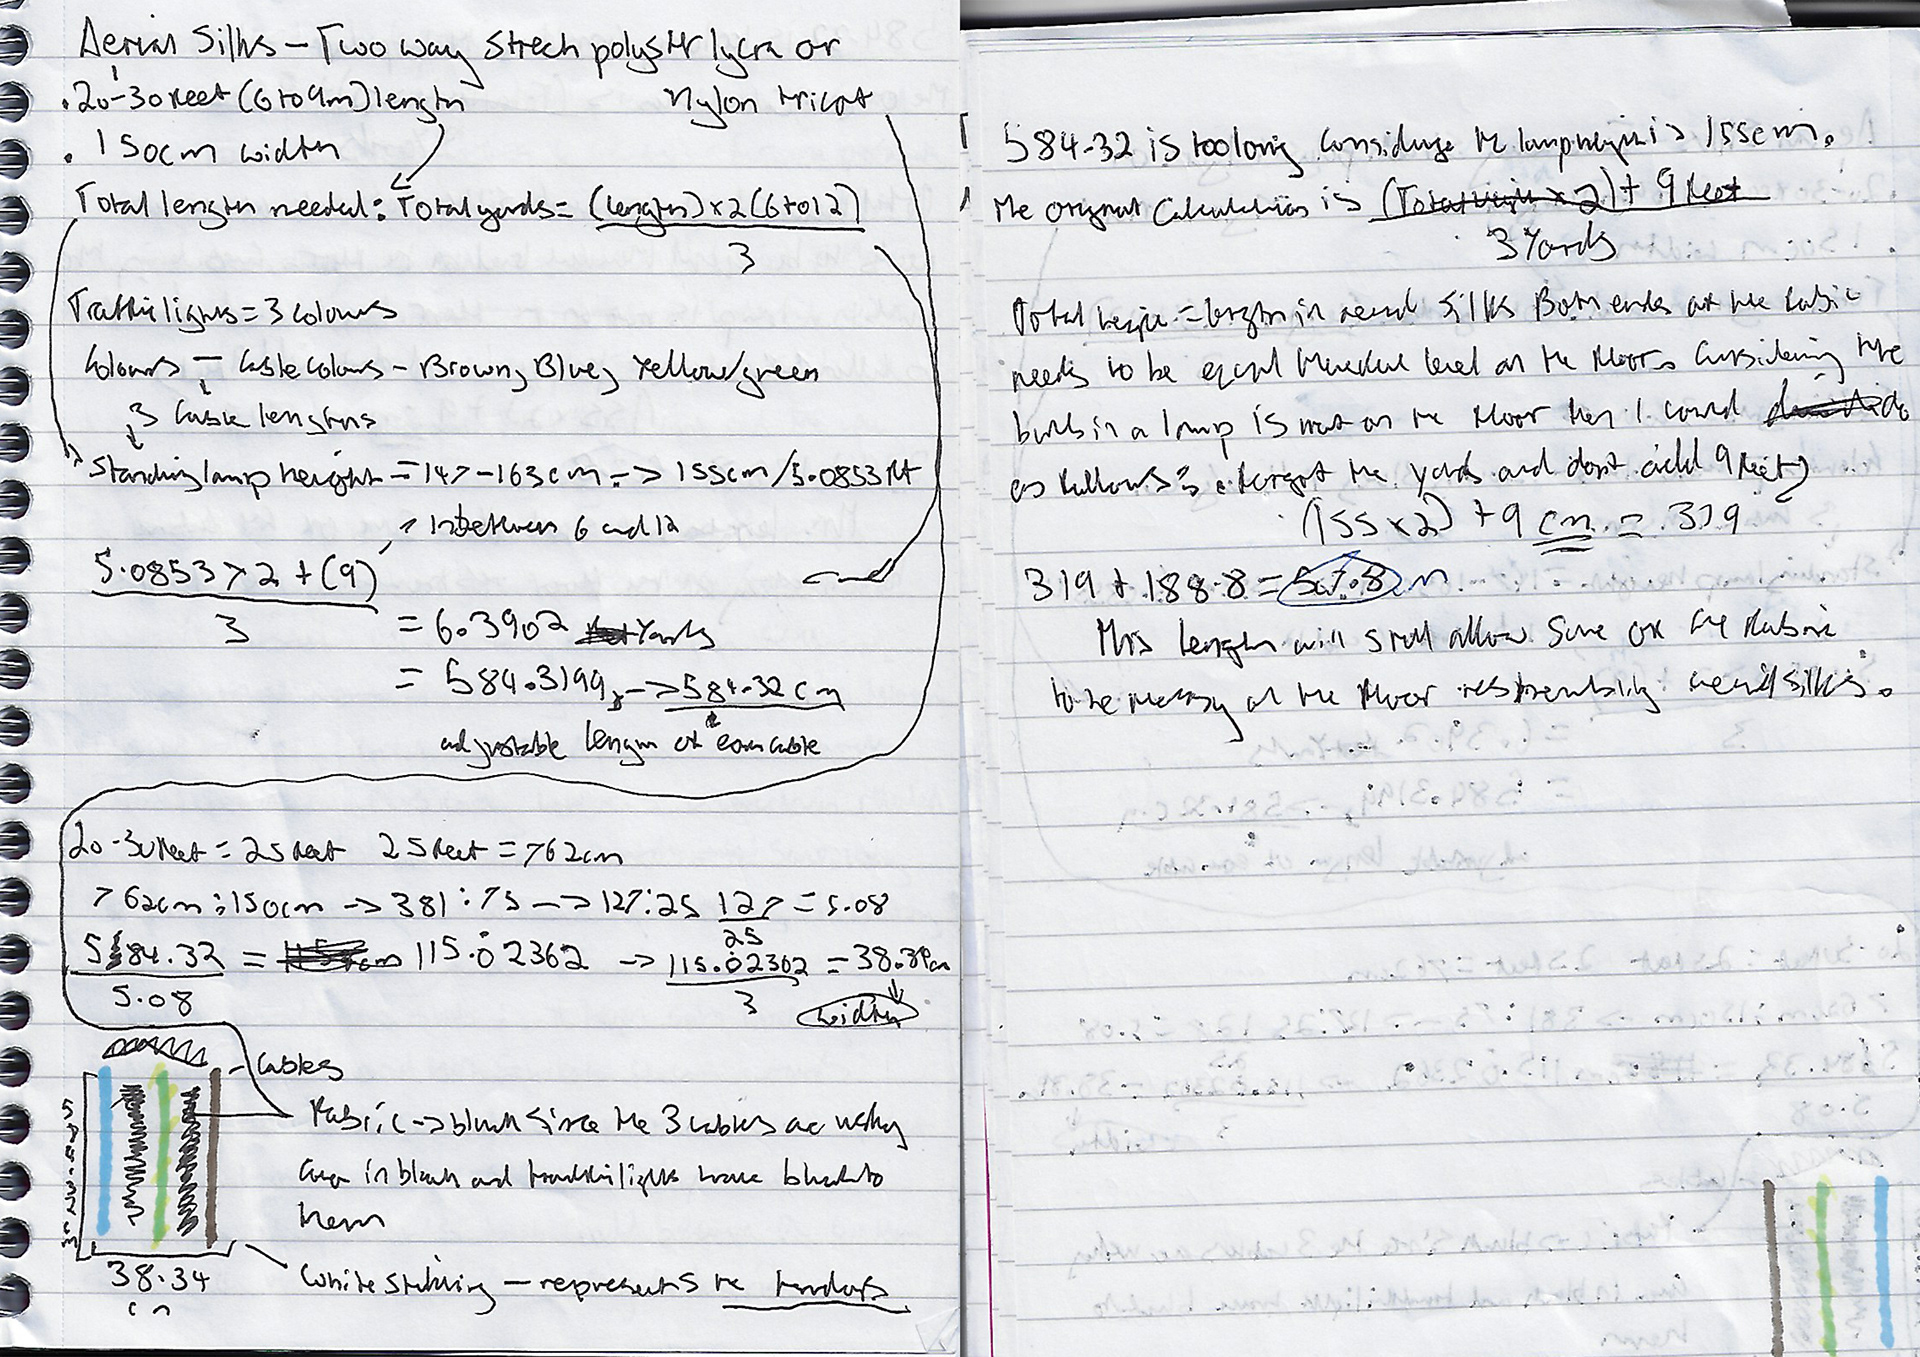 Aerial Silks – Two way strech polyster lycra or
nylon tricot
. 20-30 feet (6 to 9m) length
. 150cm width
Total length needed: Total yards = (length) x 2 (6 to 12)
3
Traffic lights = 3 colours
Colours – cable colours – Brown, Blue, Yellow/green
3 cable lengths
Standing lamp height = 147-163cm -> 155cm/5.0853ft
inbetween 6 and 12
5.0853 x 2 + (9)
3
= 6.3902 Yards
= 584.3199 -> 584.32cm
adjustable length of each cable
20-30 feet = 25 feet 25 feet = 762cm
762cm:150cm -> 381:75 -> 127:25 127 = 5.08
25
584.32 = 115.02362 -> 115.02362 = 38.34cm
5.08 3 width
Cables
Fabric -> black since the 3 cables are usually
in black and traffic lights have black to
them
38.34
cm
White stitching – represents the
584.32 is too long considering the lamp height is 155cm.
The original calculation is (Total height x 2) + 9 feet
3 Yards
Total height = length in aerial silks Both ends of the fabric
needs to be equal level on the floor. Considering the
bulb in a lamp is not on the floor then I could do
as follows: forget the yards and dont add 9 feet)
(155 x 2) + 9 cm = 319
319 + 188.8 = 507.8 m
This length will still allow some of the fabric
to be at the floor aerial silks.